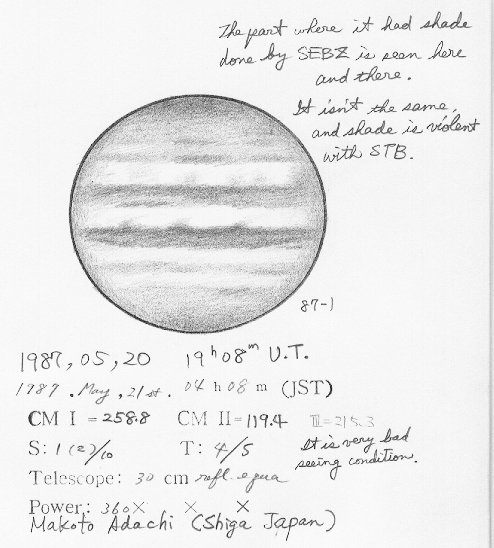 The part where it had shade
done by SEBZ is seen here
and there.
It isn't the same,
and shade is violent
with STB.
87-1
1987, 05, 20 19h08m U.T.
1987. May, 21st. 04h08m (JST)
CM I = 258.8 CM II = 119.4 III = 215.3
S: 1 (2)/10 T: 4/5 It is very bad
seeing condition.
Telescope: 30 cm refl. equa
Power: 360× × ×
Makoto Adachi (Shiga Japan)